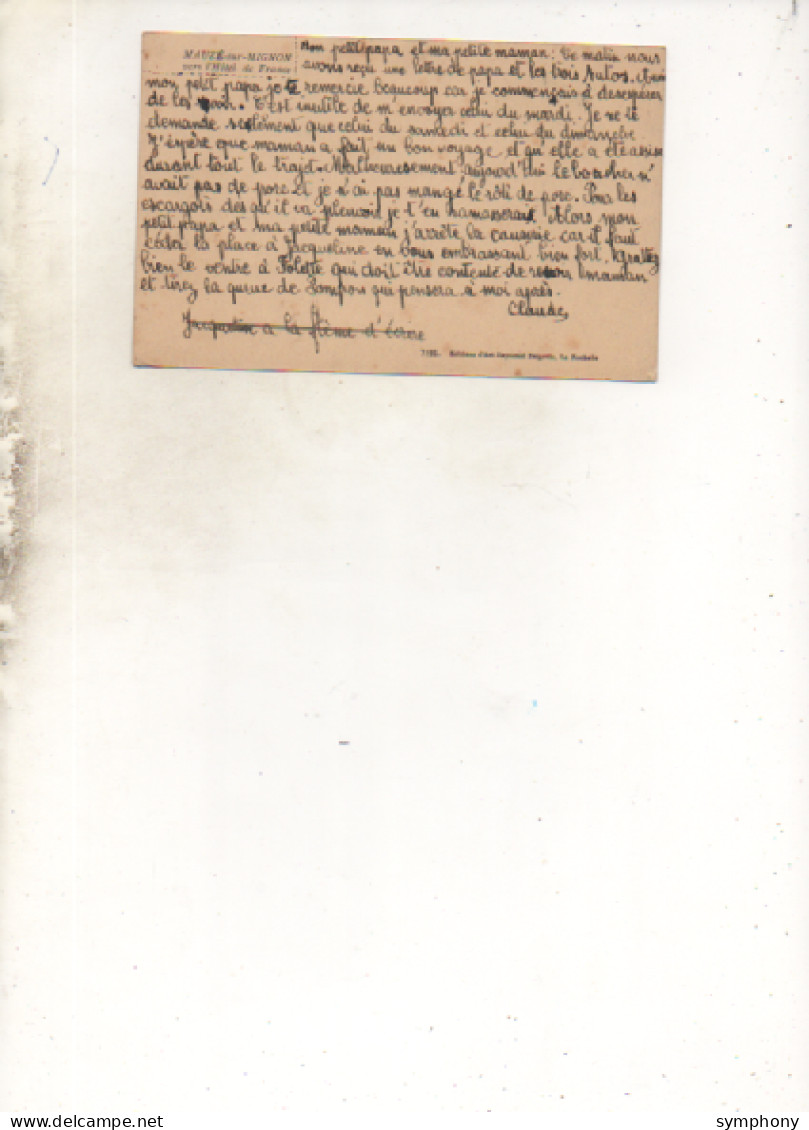 MAUZÉ-sur-MIGNON
vers l'Hôtel de France
Mon petit papa et ma petite maman: Ce matin nous
avons reçu une lettre de papa et les trois Autos. Aussi
mon petit papa je te remercie beaucoup car je commençais à desespérer
de les voir. C'est inutile de m'envoyer celui du mardi. Je ne te
demande seulement que celui du samedi et celui du dimanche
J'éspère que maman a fait un bon voyage et qu'elle a été assise
durant tout le trajet. Malheureusement aujourd'hui le boucher n'
avait pas de porc et je n'ai pas mangé le rôti de porc. Pour les
escargots dès qu'il va pleuvoir je t'en ramasserai! Alors mon
petit papa et ma petite maman j'arrête la causerie car il faut
céder la place à Jacqueline en vous embrassant bien fort. Grattez
bien le ventre à Folette qui doit être contente de revoir maman
et tirez la queue de Pompon qui pensera à moi après.
Claude
Jacqueline a la flème d'écrire
7132. Editions d'Art Raymond Bergevin, La Rochelle
delcampe.net
symphony